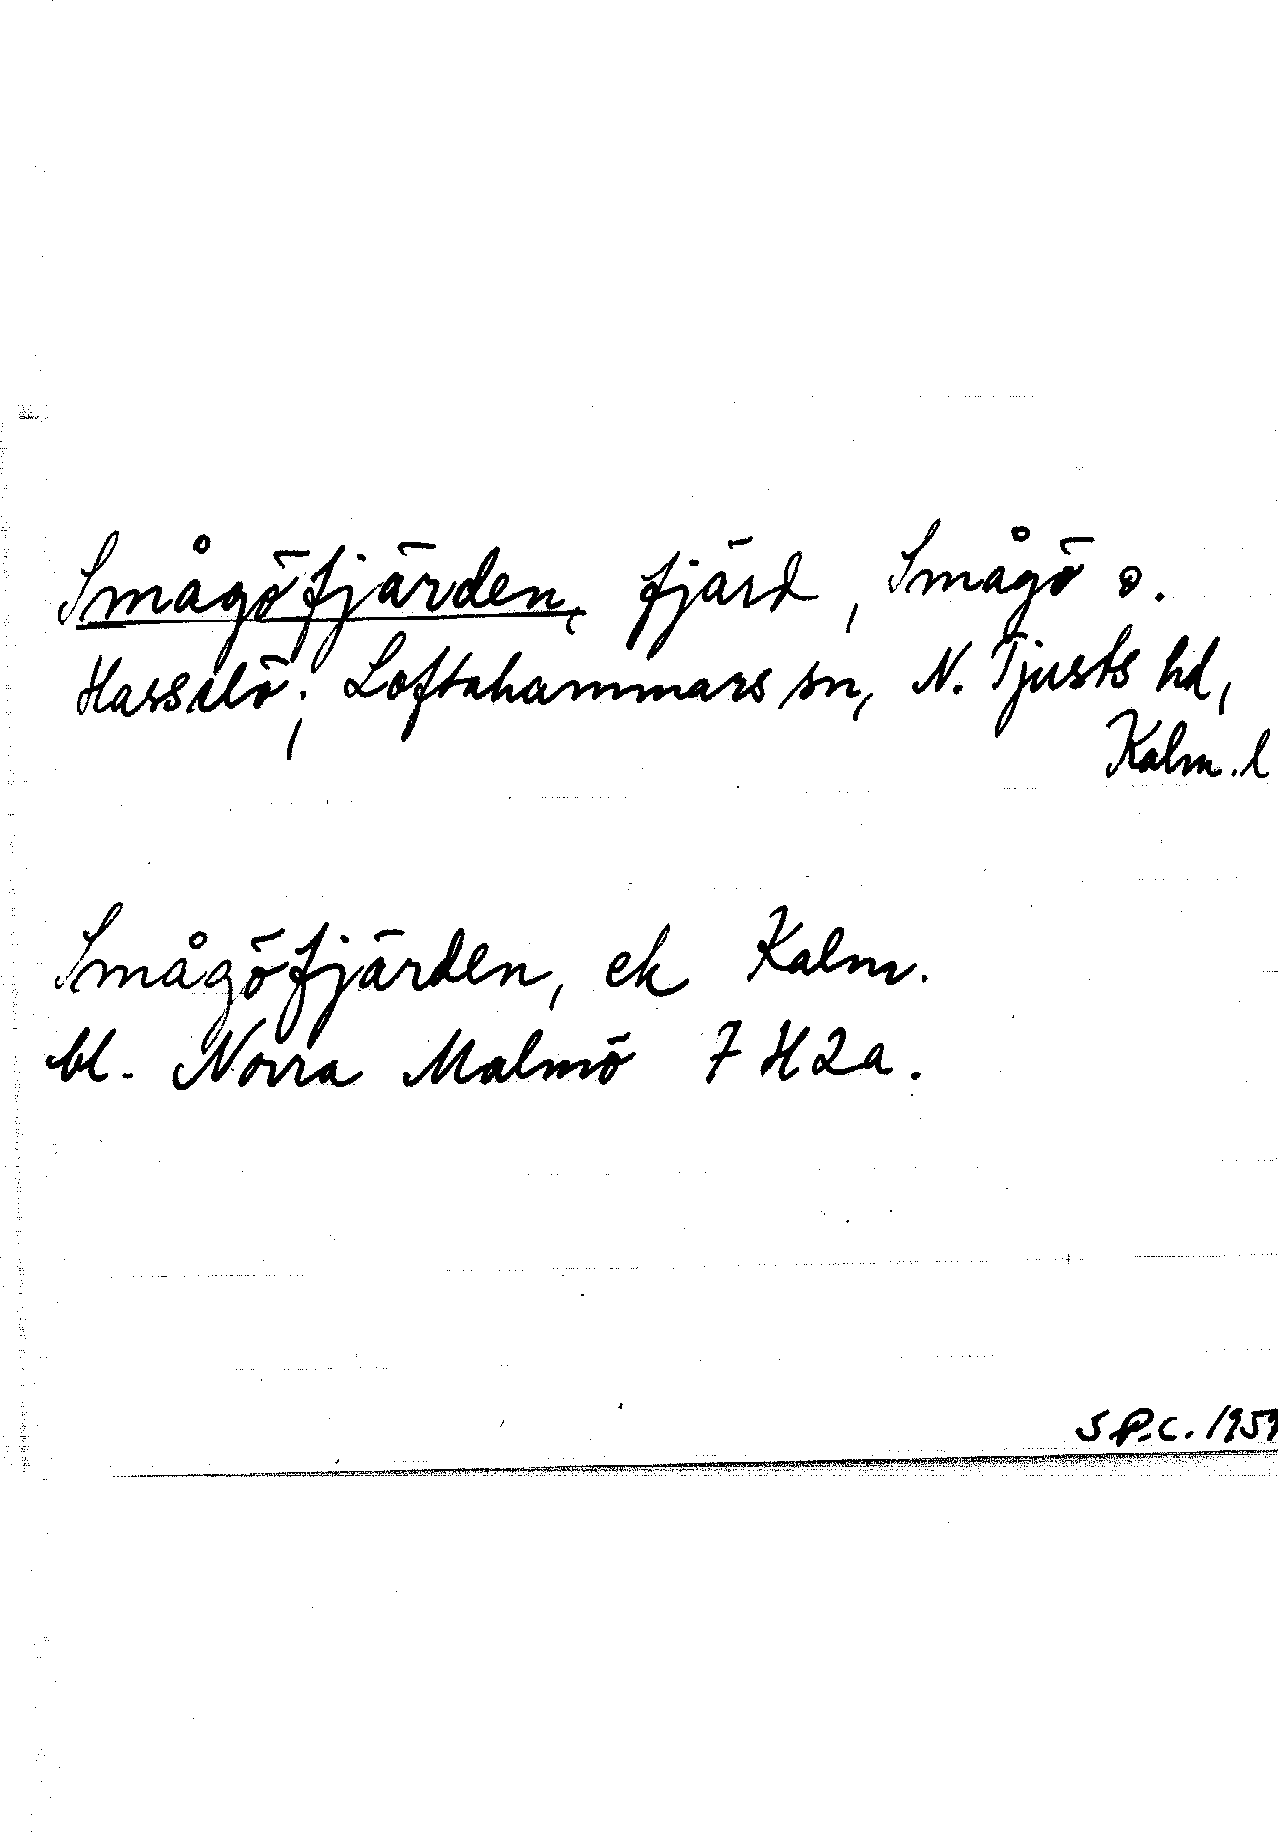 Smågöfjärden, fjärd, Smågö o.
Hasselö; Loftahammars sn, N. Tjusts hd,
Kalm. l
Smågöfjärden, ek Kalm.
bl. Norra Malmö 7 H 2a.
S P.C. 1959